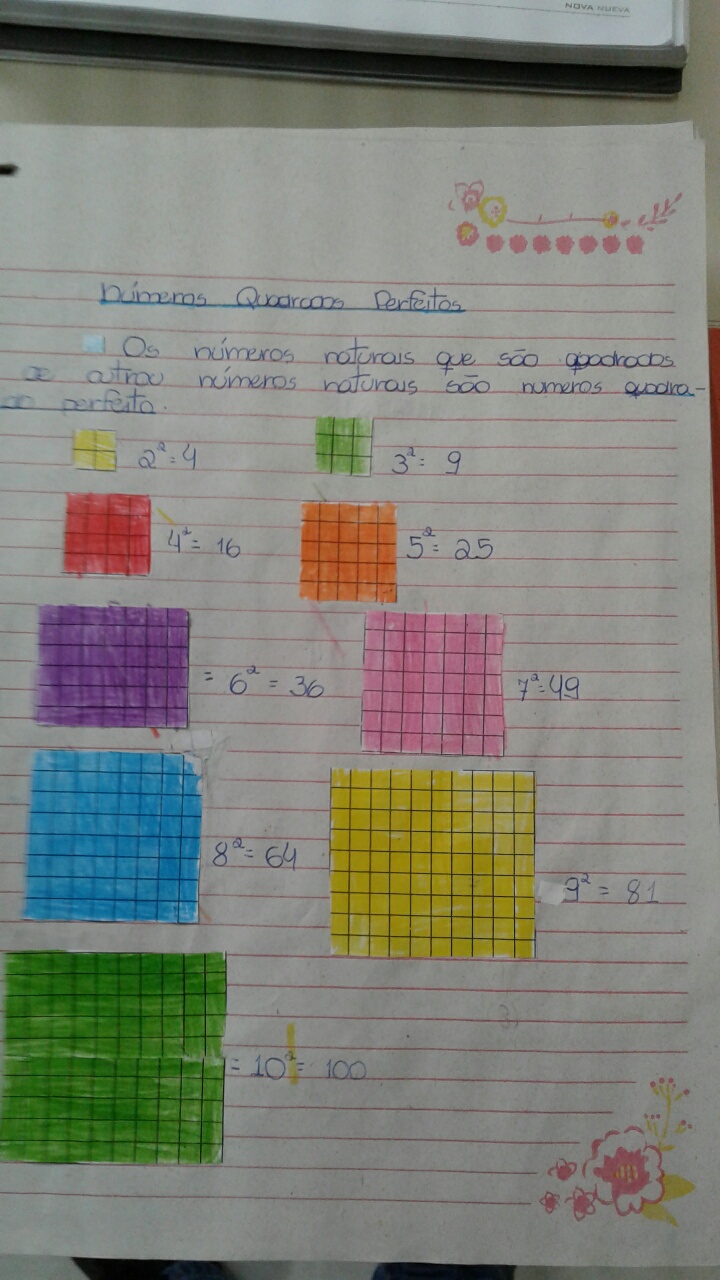 NOVA NUEVA
Números Quadrados Perfeitos
Os números naturais que são quadrados
de outrou números naturais são numeros quadra-
do perfeito.
2² = 4
3² = 9
4² = 16
5² = 25
= 6² = 36
7² = 49
8² = 64
9² = 81
3)
= 10² = 100